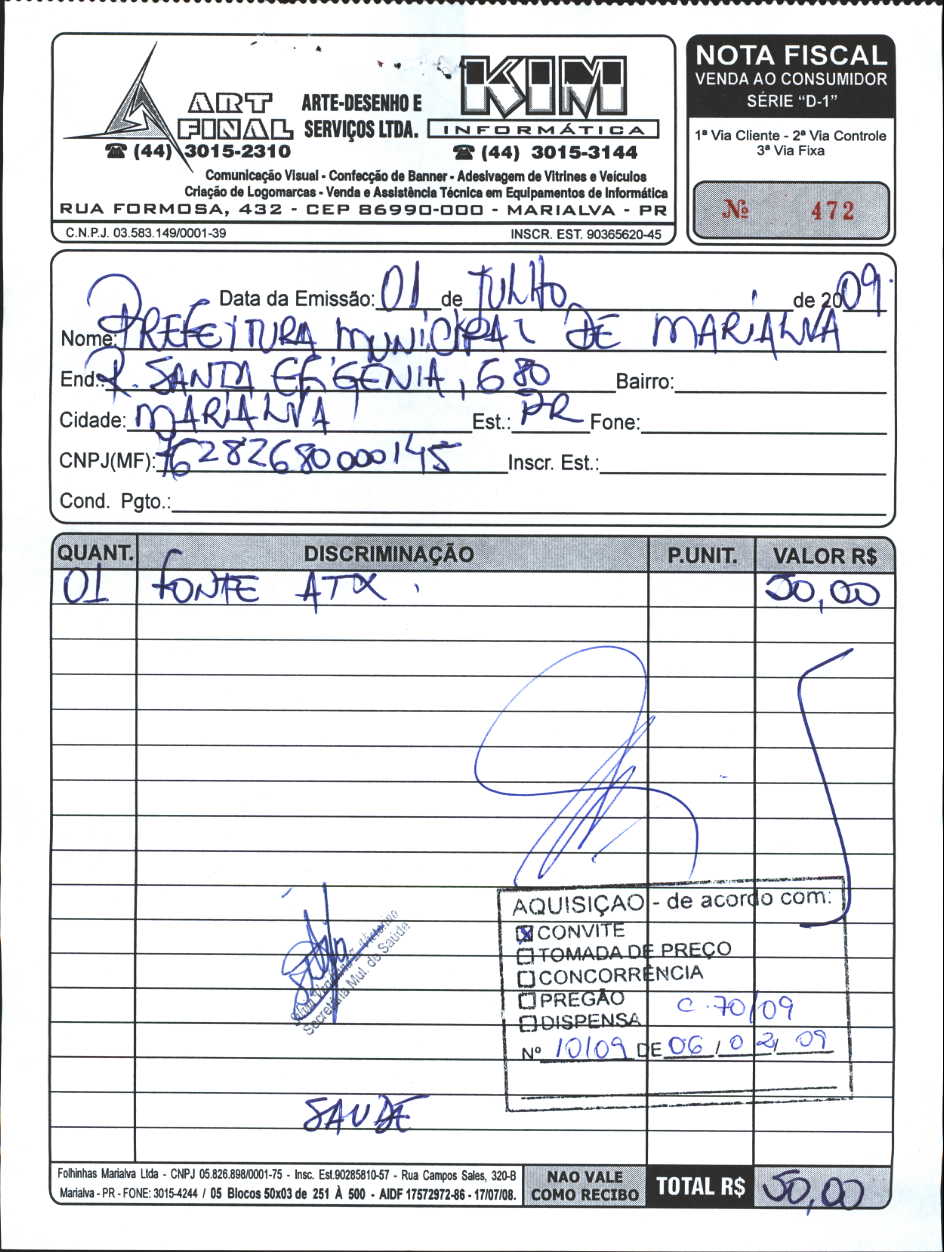 ART FINAL ARTE-DESENHO E SERVIÇOS LTDA. KIM INFORMÁTICA
(44) 3015-2310 (44) 3015-3144
Comunicação Visual - Confecção de Banner - Adesivagem de Vitrines e Veículos
Criação de Logomarcas - Venda e Assistência Técnica em Equipamentos de Informática
RUA FORMOSA, 432 - CEP 86990-000 - MARIALVA - PR
C.N.P.J. 03.583.149/0001-39 INSCR. EST. 90365620-45
NOTA FISCAL
VENDA AO CONSUMIDOR
SÉRIE "D-1"
1ª Via Cliente - 2ª Via Controle
3ª Via Fixa
Nº 472
Data da Emissão: 01 de JULHO de 2009.
Nome: PREFEITURA MUNICIPAL DE MARIALVA
End.: R. SANTA EFIGENIA, 680 Bairro:
Cidade: MARIALVA Est.: PR Fone:
CNPJ(MF): 76282680000145 Inscr. Est.:
Cond. Pgto.:
QUANT. DISCRIMINAÇÃO P.UNIT. VALOR R$
01 FONTE ATX. 50,00
AQUISIÇAO - de acordo com:
CONVITE
TOMADA DE PREÇO
CONCORRÊNCIA
PREGÃO
C.70/09
DISPENSA
Nº 10/09 DE 06/02/09
Secretária Mul. de Saúde
SAUDE
Folhinhas Marialva Ltda - CNPJ 05.826.898/0001-75 - Insc. Est.90285810-57 - Rua Campos Sales, 320-B
Marialva - PR - FONE: 3015-4244 / 05 Blocos 50x03 de 251 À 500 - AIDF 17572972-86 - 17/07/08.
NAO VALE
COMO RECIBO
TOTAL R$ 50,00